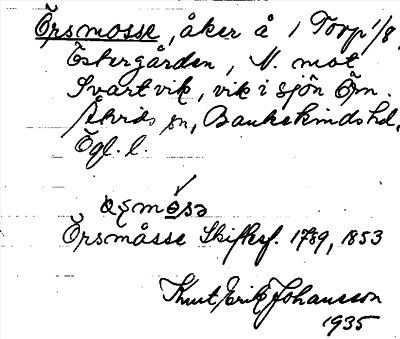 Örsmosse, åker å 1 Torp 1/8,
Östergården, N. mot
Svartvik, vik i sjön Örn.
Åtvids sn, Bankekinds hd.
Ögl. l.
Örsmåsse Skifksf. 1789, 1853
Knut Erik Johansson
1935